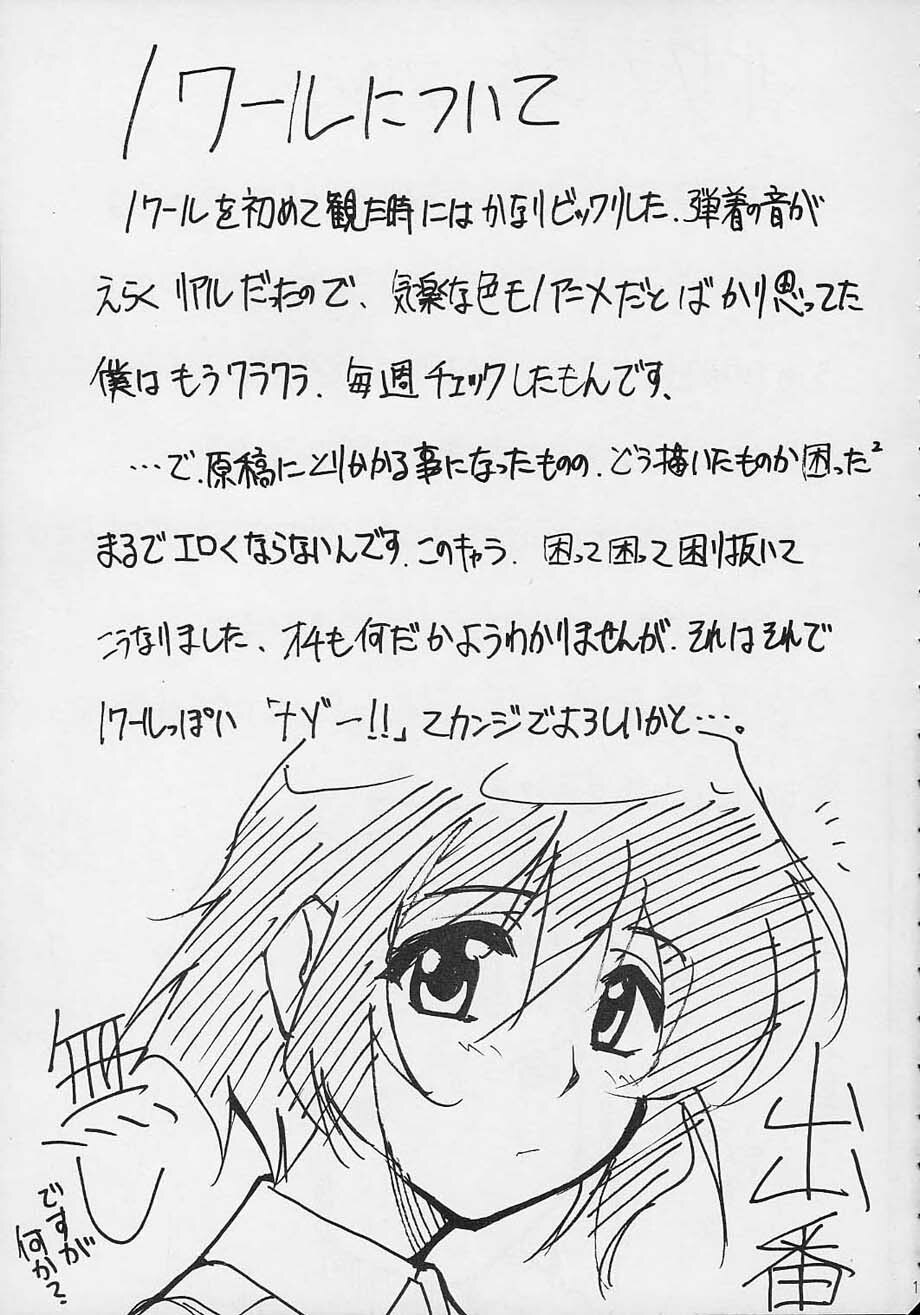 ノワールについて
ノワールを初めて観た時にはかなりビックリした、弾着の音が
えらくリアルだったので、気楽な色モノアニメだとばかり思ってた
僕はもうクラクラ、毎週チェックしたもんです、
…で、原稿にとりかかる事になったものの、どう描いたものか困った²
まるでエロくならないんです、このキャラ、困って困って困り抜いて
こうなりました、オチも何だかようわかりませんが、それはそれで
ノワールっぽい「ナゾー!!」てカンジでよろしいかと…。
出番
無
ですが
何か?